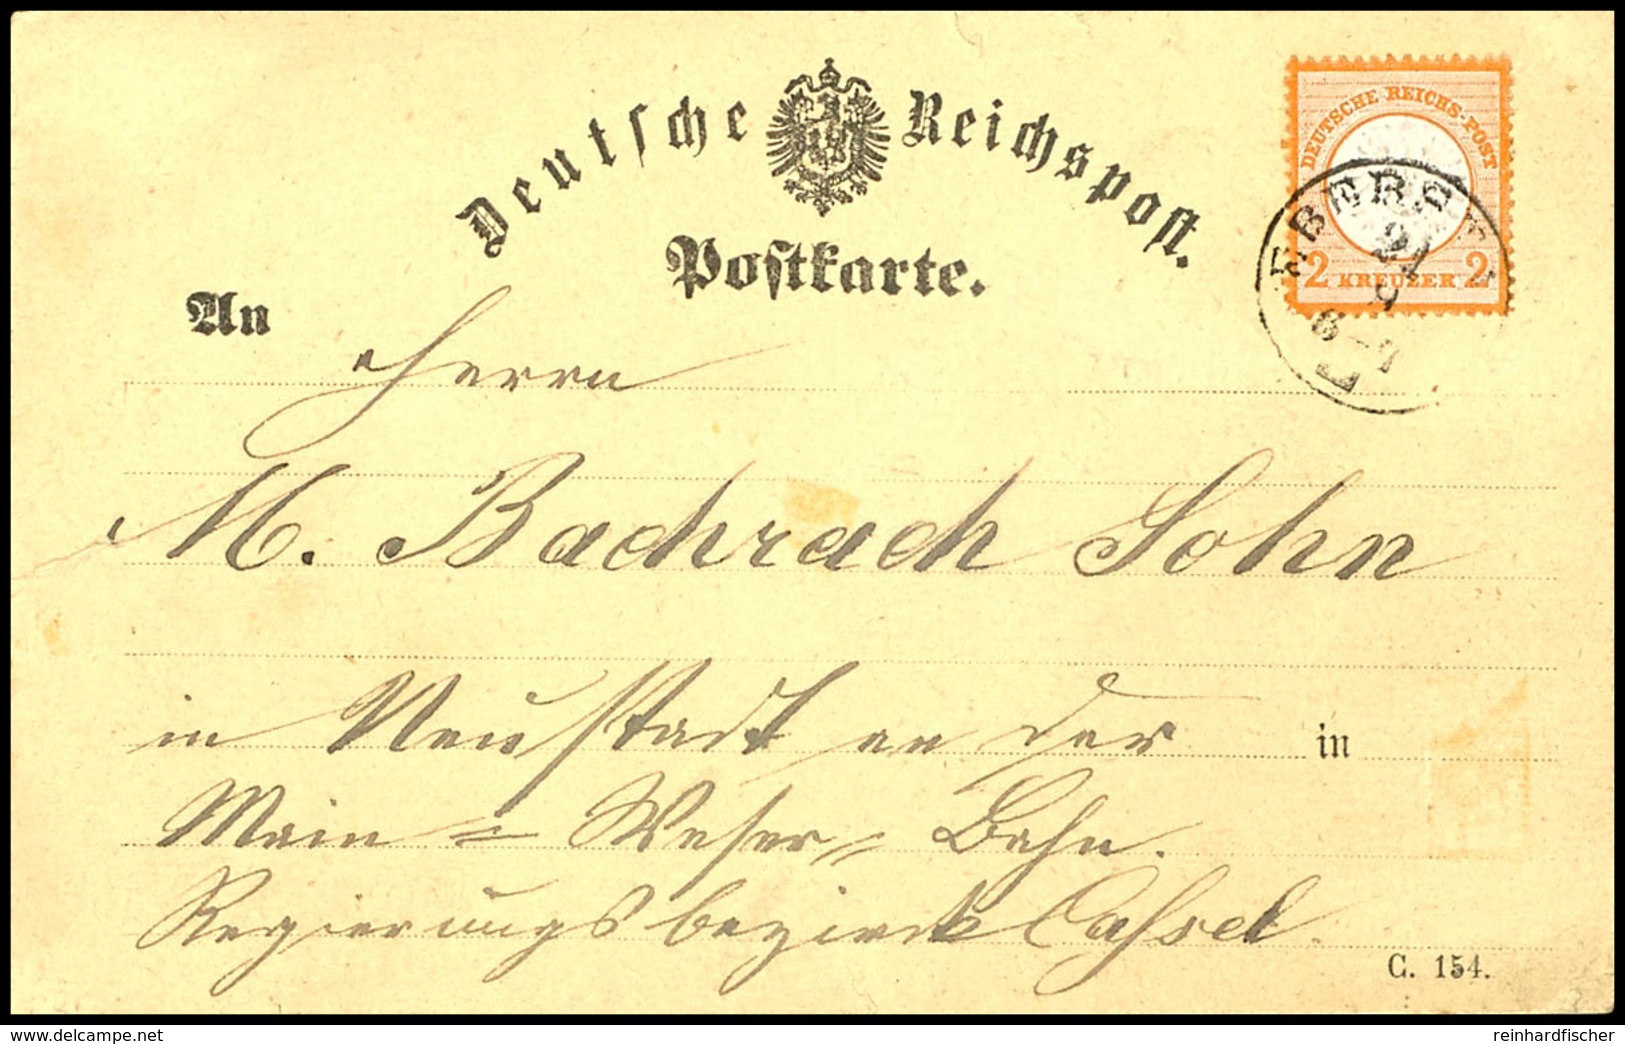 Deutsche Reichspost.
Postkarte.
DEUTSCHE REICHS-POST
2 KREUZER 2
An
Herrn
M. Bachrach Sohn
in Neustadt an der in
Main = Weser = Bahn.
Regierungsbezirk Cassel
C. 154.
delcampe.net
reinhardfischer